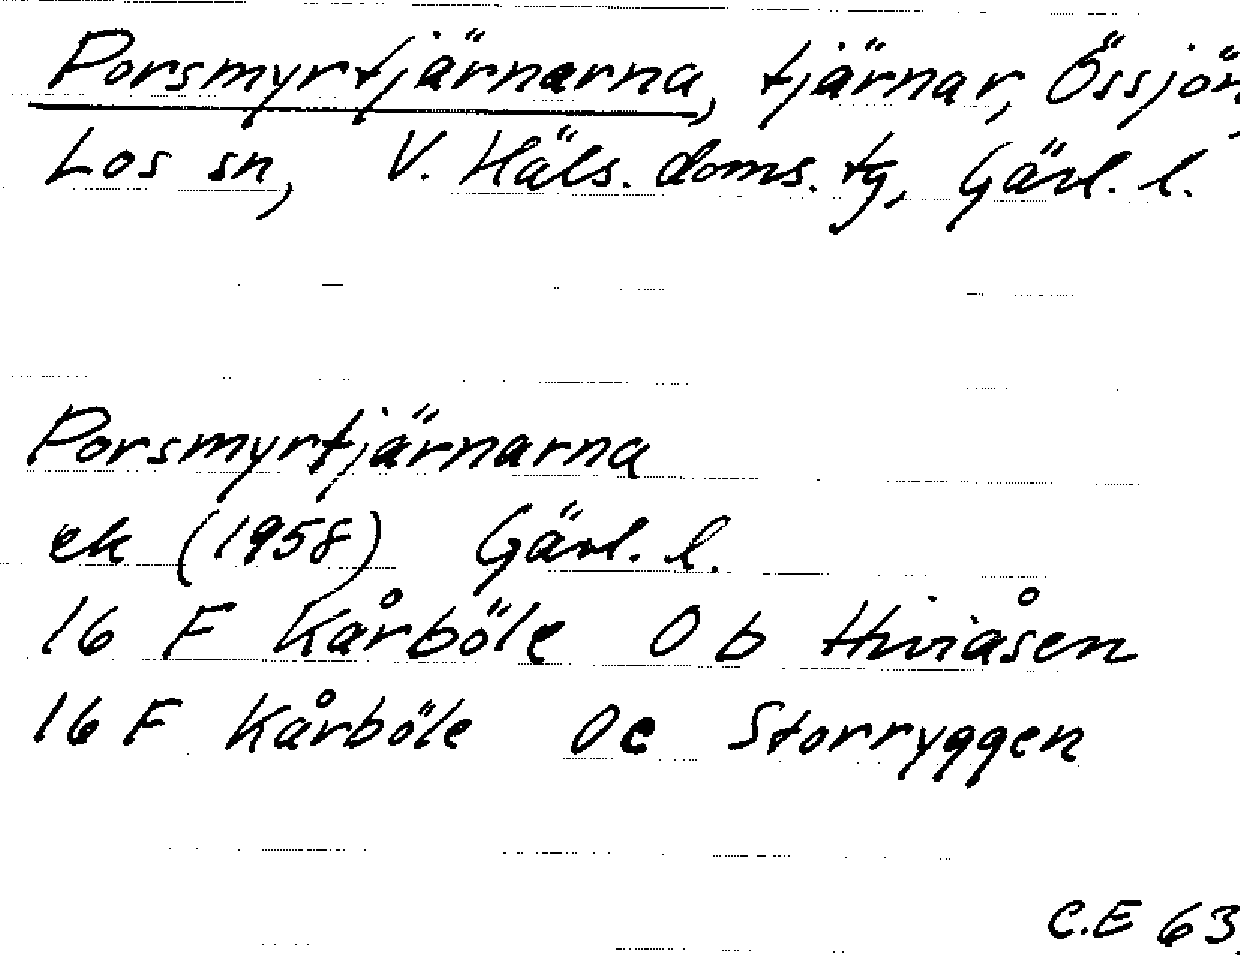 Porsmyrtjärnarna, tjärnar, Össjön,
Los sn, V. Häls. doms. tg, Gävl. l.
Porsmyrtjärnarna
ek (1958) Gävl. l.
16 F Kårböle 0 b Hiviåsen
16 F Kårböle 0c Storryggen
C.E 63.